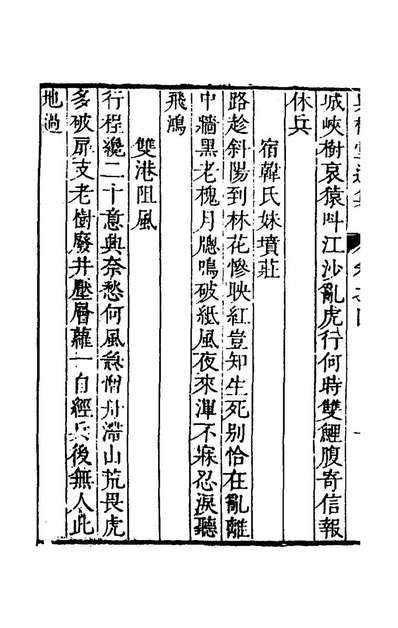 城峽樹哀猿叫江沙亂虎行何時雙鯉腹寄信報
休兵
宿韓氏妹墳莊
路趁斜陽到林花慘映紅豈知生死别恰在亂離
中牆黑老槐月牕鳴破紙風夜來渾不寐忍淚聽
飛鴻
雙港阻風
行程纔二十意興奈愁何風急憎舟滯山荒畏虎
多破扉支老樹廢井壓層蘿一自經兵後無人此
地過